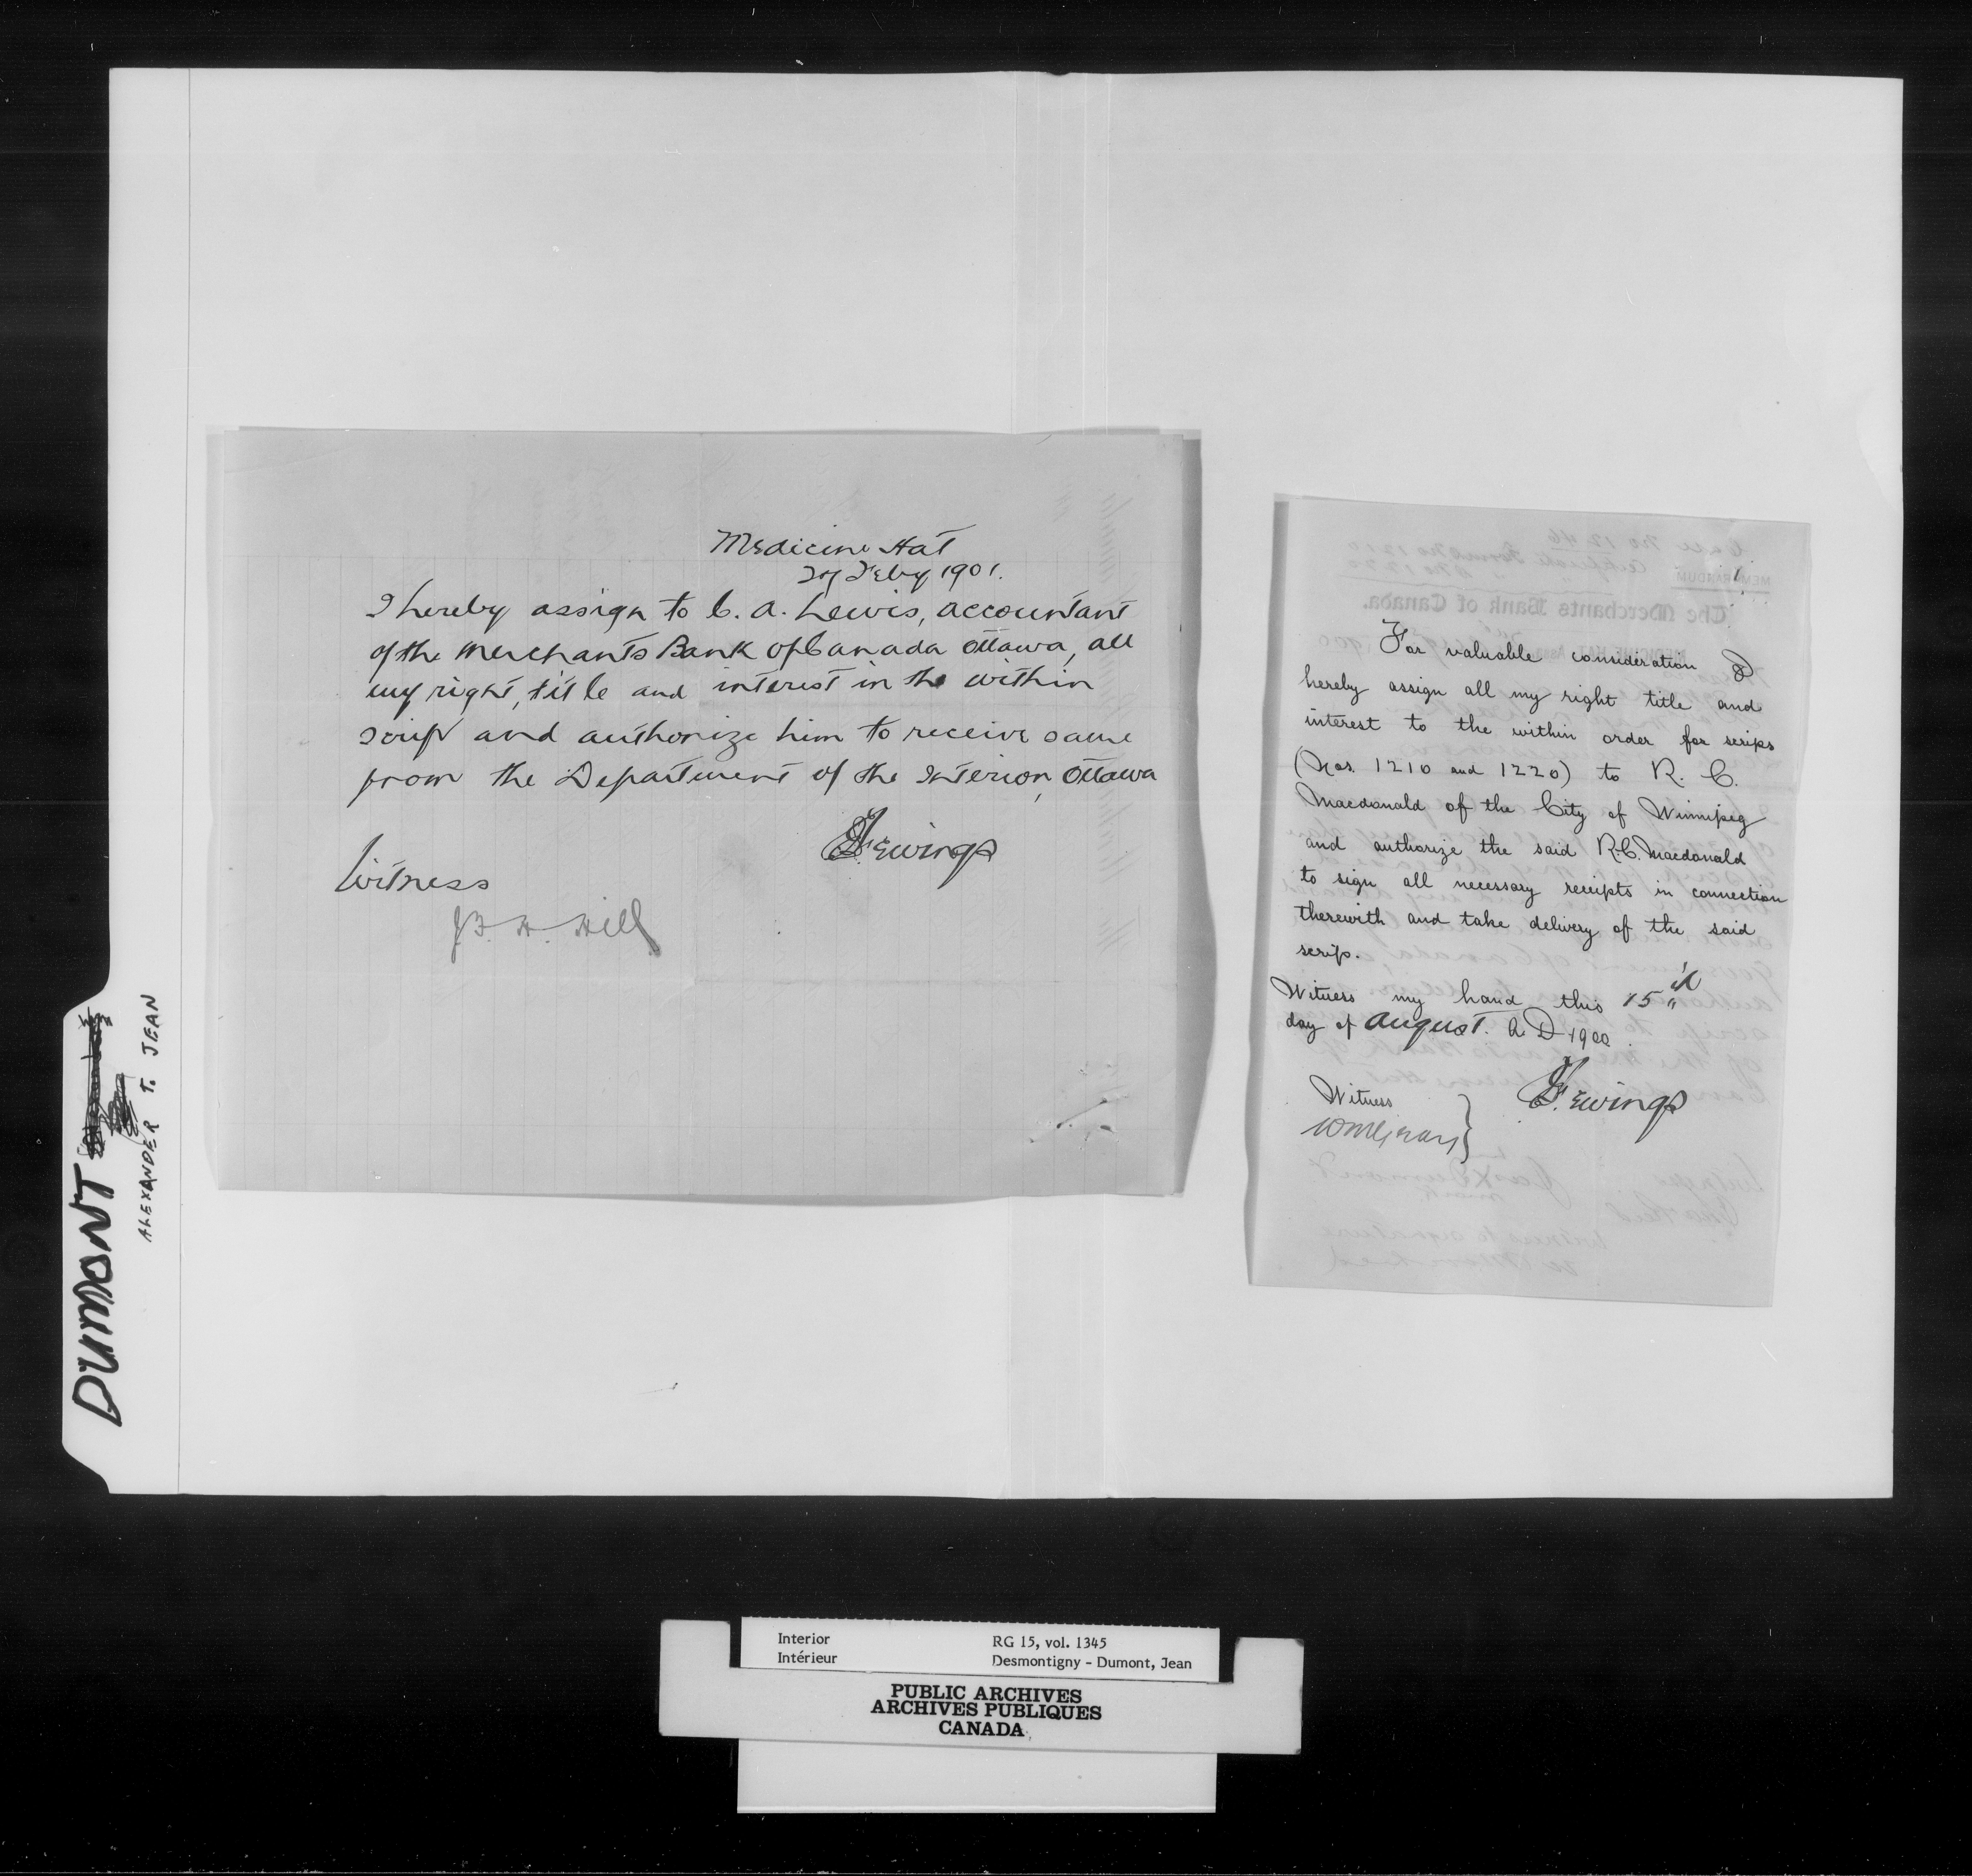 Medicine Hat
27 Feby 1901.
I hereby assign to C. A. Lewis, accountant
of the Merchants Bank of Canada Ottawa, all
my right, title and interest in the within
scrip and authorize him to receive same
from the Department of the Interior, Ottawa
F. Ewings
Witness
J. F. H. Hill
MEMORANDUM
The Merchants Bank of Canada.
For valuable consideration I
hereby assign all my right title and
interest to the within order for scrips
(Nos. 1210 and 1220) to R. C.
Macdonald of the City of Winnipeg
and authorize the said R.C. Macdonald
to sign all necessary receipts in connection
therewith and take delivery of the said
scrip.
Witness my hand this 15th
day of August. A D 1900
Witness
F. Ewings
DUMONT
ALEXANDER T. JEAN
Interior
Intérieur
RG 15, vol. 1345
Desmontigny - Dumont, Jean
PUBLIC ARCHIVES
ARCHIVES PUBLIQUES
CANADA